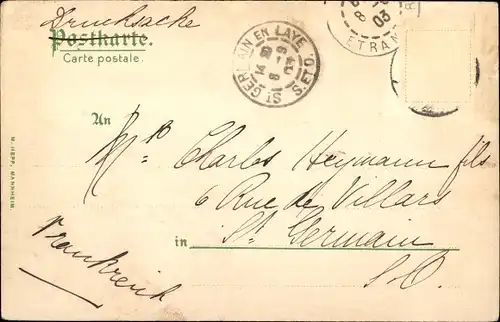 Drucksache
Postkarte.
Carte postale.
ST GERMAIN EN LAYE
S. ET O.
ETRAN
8
03
An
Mr Charles Heymann fils
6 Rue de Villars
in St Germain
S-O.
Frankreich
M. HEPP, MANNHEIM